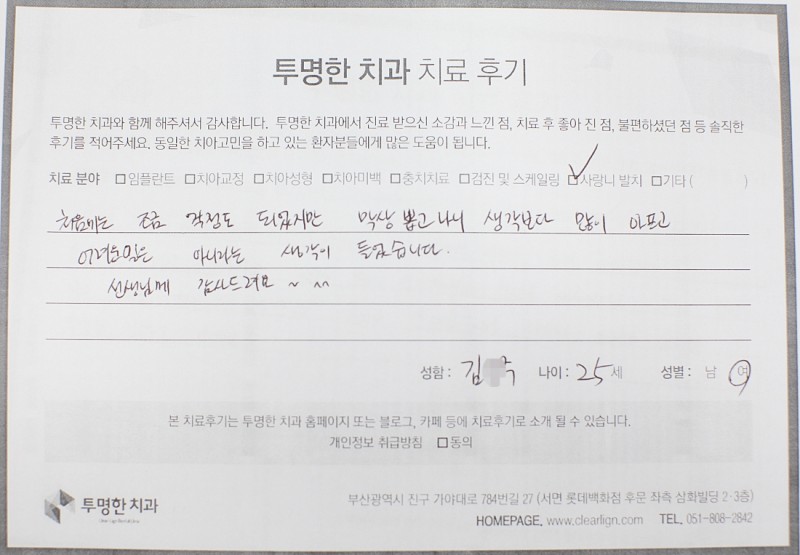 투명한 치과 치료 후기
투명한 치과와 함께 해주셔서 감사합니다. 투명한 치과에서 진료 받으신 소감과 느낀 점, 치료 후 좋아 진 점, 불편하셨던 점 등 솔직한
후기를 적어주세요. 동일한 치아고민을 하고 있는 환자분들에게 많은 도움이 됩니다.
치료 분야 □임플란트 □치아교정 □치아성형 □치아미백 □충치치료 □검진 및 스케일링 ☑사랑니 발치 □기타 ( )
처음에는 조금 걱정도 되었지만 막상 뽑고 나니 생각보다 많이 아프고
어려운일은 아니라는 생각이 들었습니다.
선생님께 감사드려요 ~ ^^
성함 : 김 나이 : 25 세 성별 : 남 여
본 치료후기는 투명한 치과 홈페이지 또는 블로그, 카페 등에 치료후기로 소개 될 수 있습니다.
개인정보 취급방침 □동의
투명한 치과
부산광역시 진구 가야대로 784번길 27 (서면 롯데백화점 후문 좌측 삼화빌딩 2·3층)
HOMEPAGE. www.clearlign.com TEL. 051-808-2842